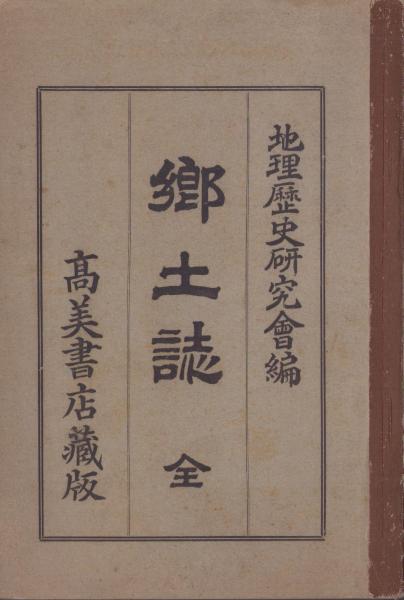 地理歷史研究會編
鄉土誌 全
髙美書店藏版